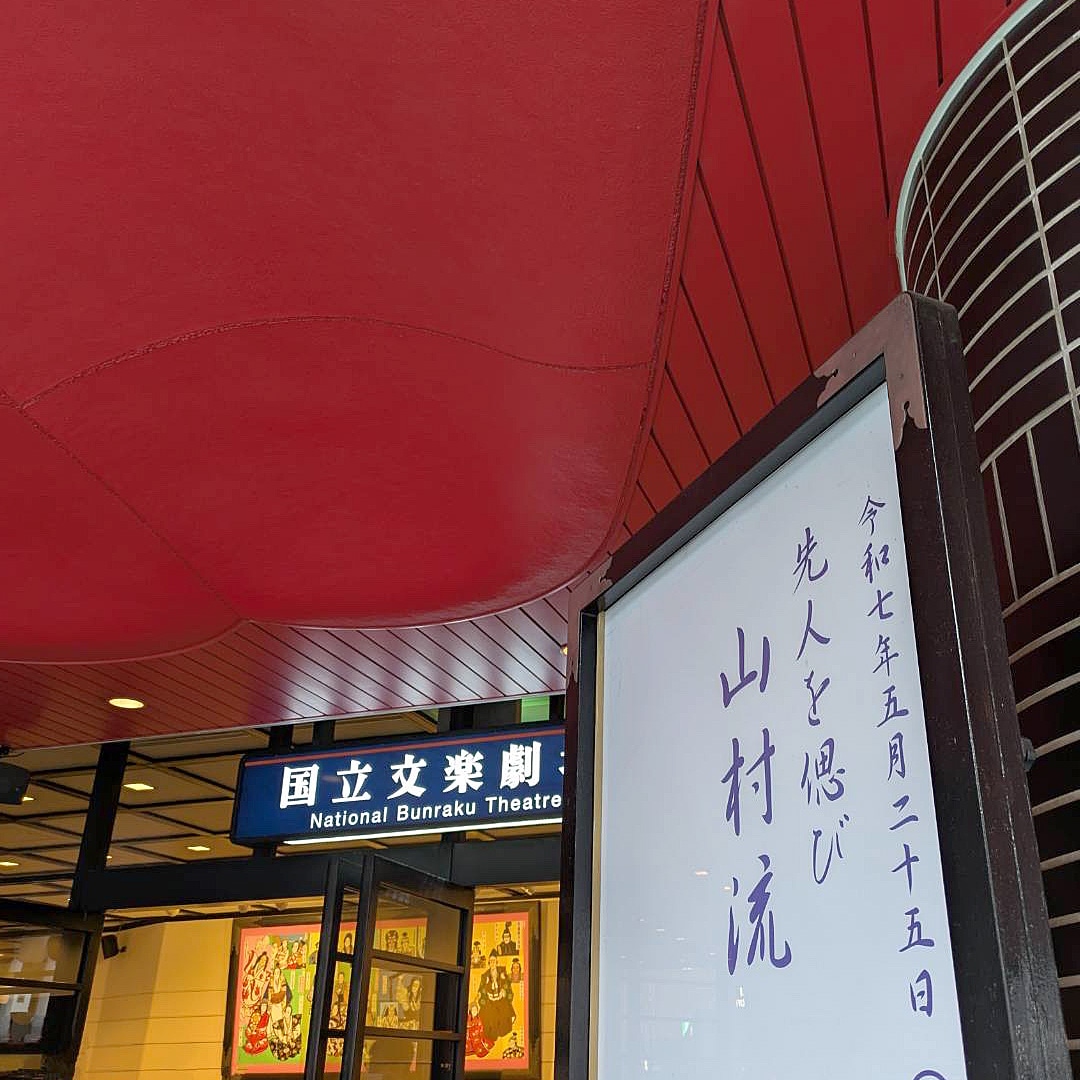 令和七年五月二十五日
先人を偲び
山村流
国立文楽劇
National Bunraku Theatre